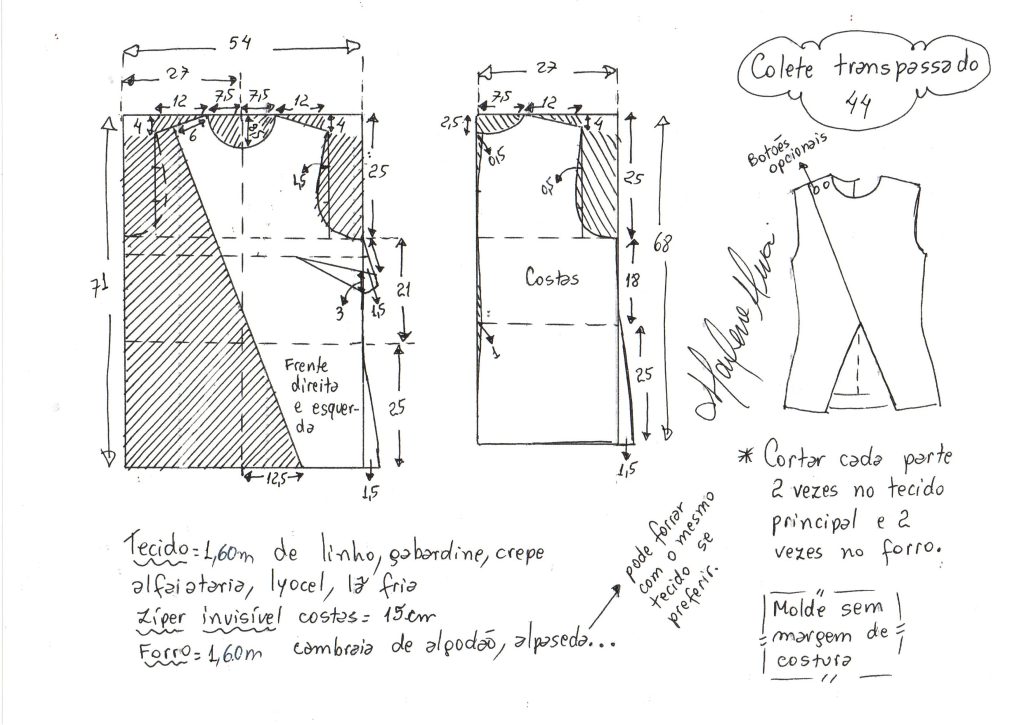 54
27
12
7,5
7,5
12
4
6
8,5
4
1,5
25
71
3
1,5
21
Frente
direita
e esquer-
da
25
12,5
1,5
27
7,5
12
2,5
4
0,5
0,5
25
68
Costas
18
1
25
1,5
Colete transpassado
44
Botões
opcionais
* Cortar cada parte
2 vezes no tecido
principal e 2
vezes no forro.
Tecido = 1,60m de linho, gabardine, crepe
alfaiataria, lyocel, lã fria
Zíper invisível costas = 15cm
Forro = 1,60m cambraia de algodão, alpaseda...
pode forrar
com o mesmo
tecido se
preferir.
Molde sem
margem de
costura